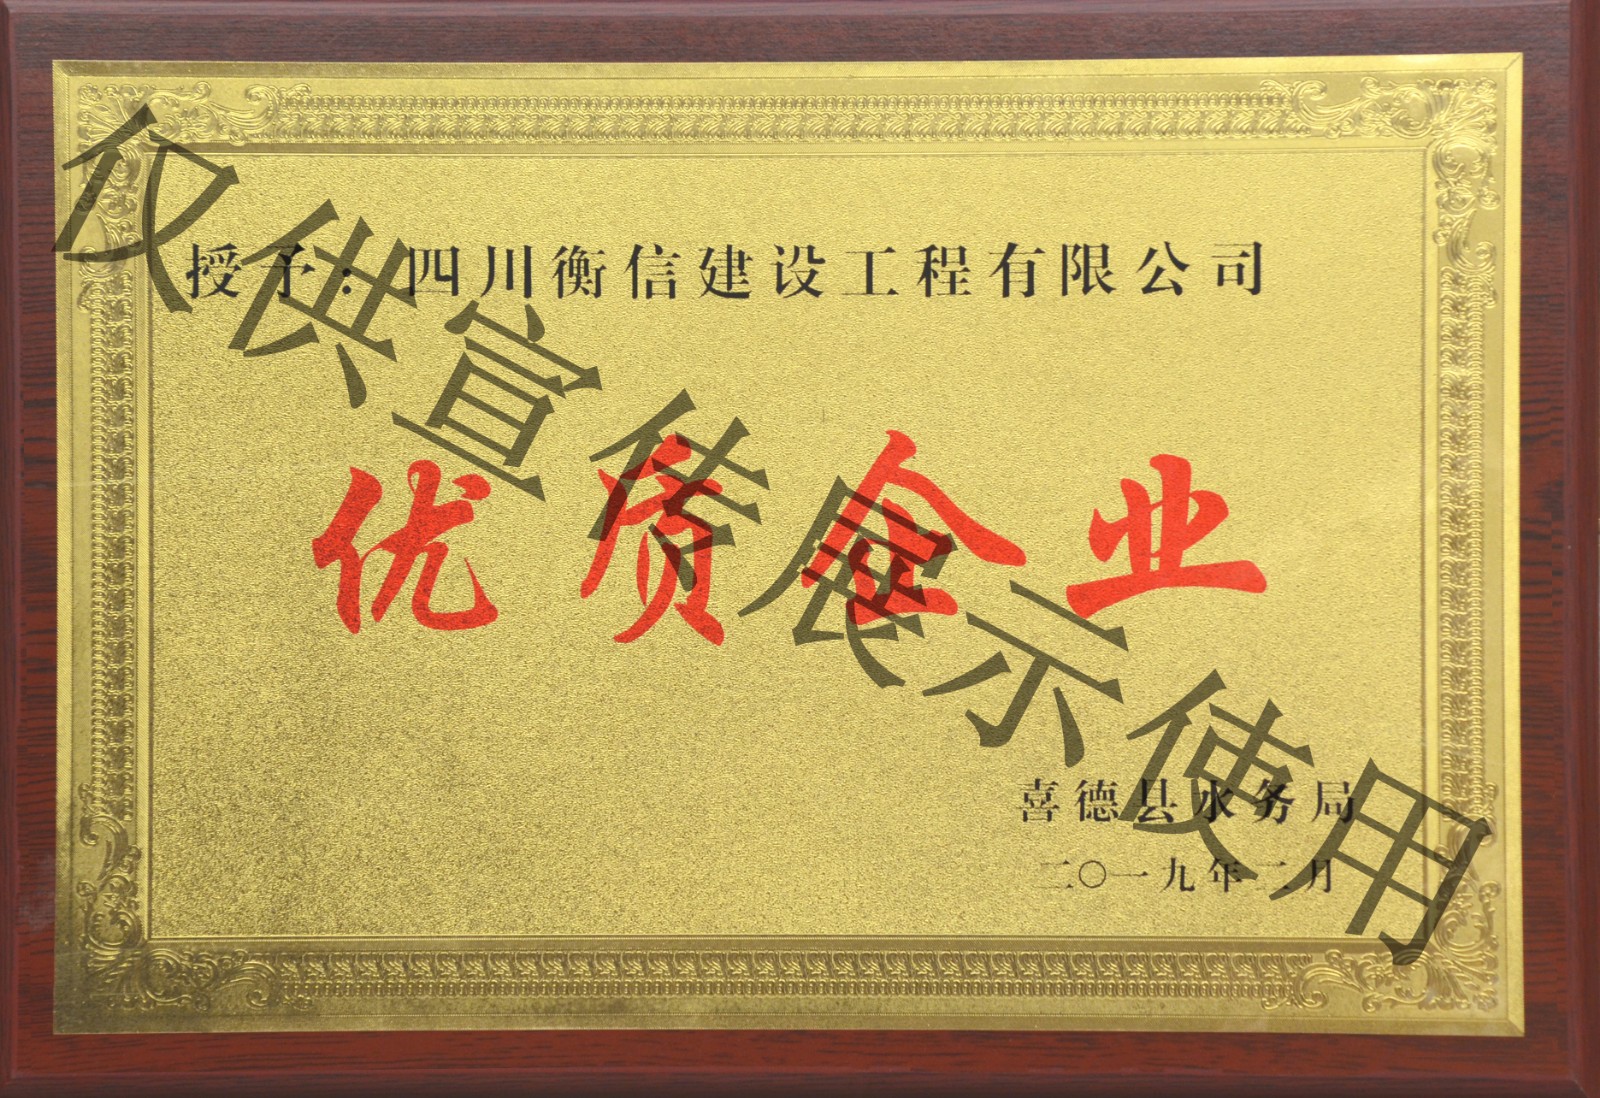 授予：四川衡信建设工程有限公司
优质企业
喜德县水务局
二〇一九年二月
仅供宣传展示使用